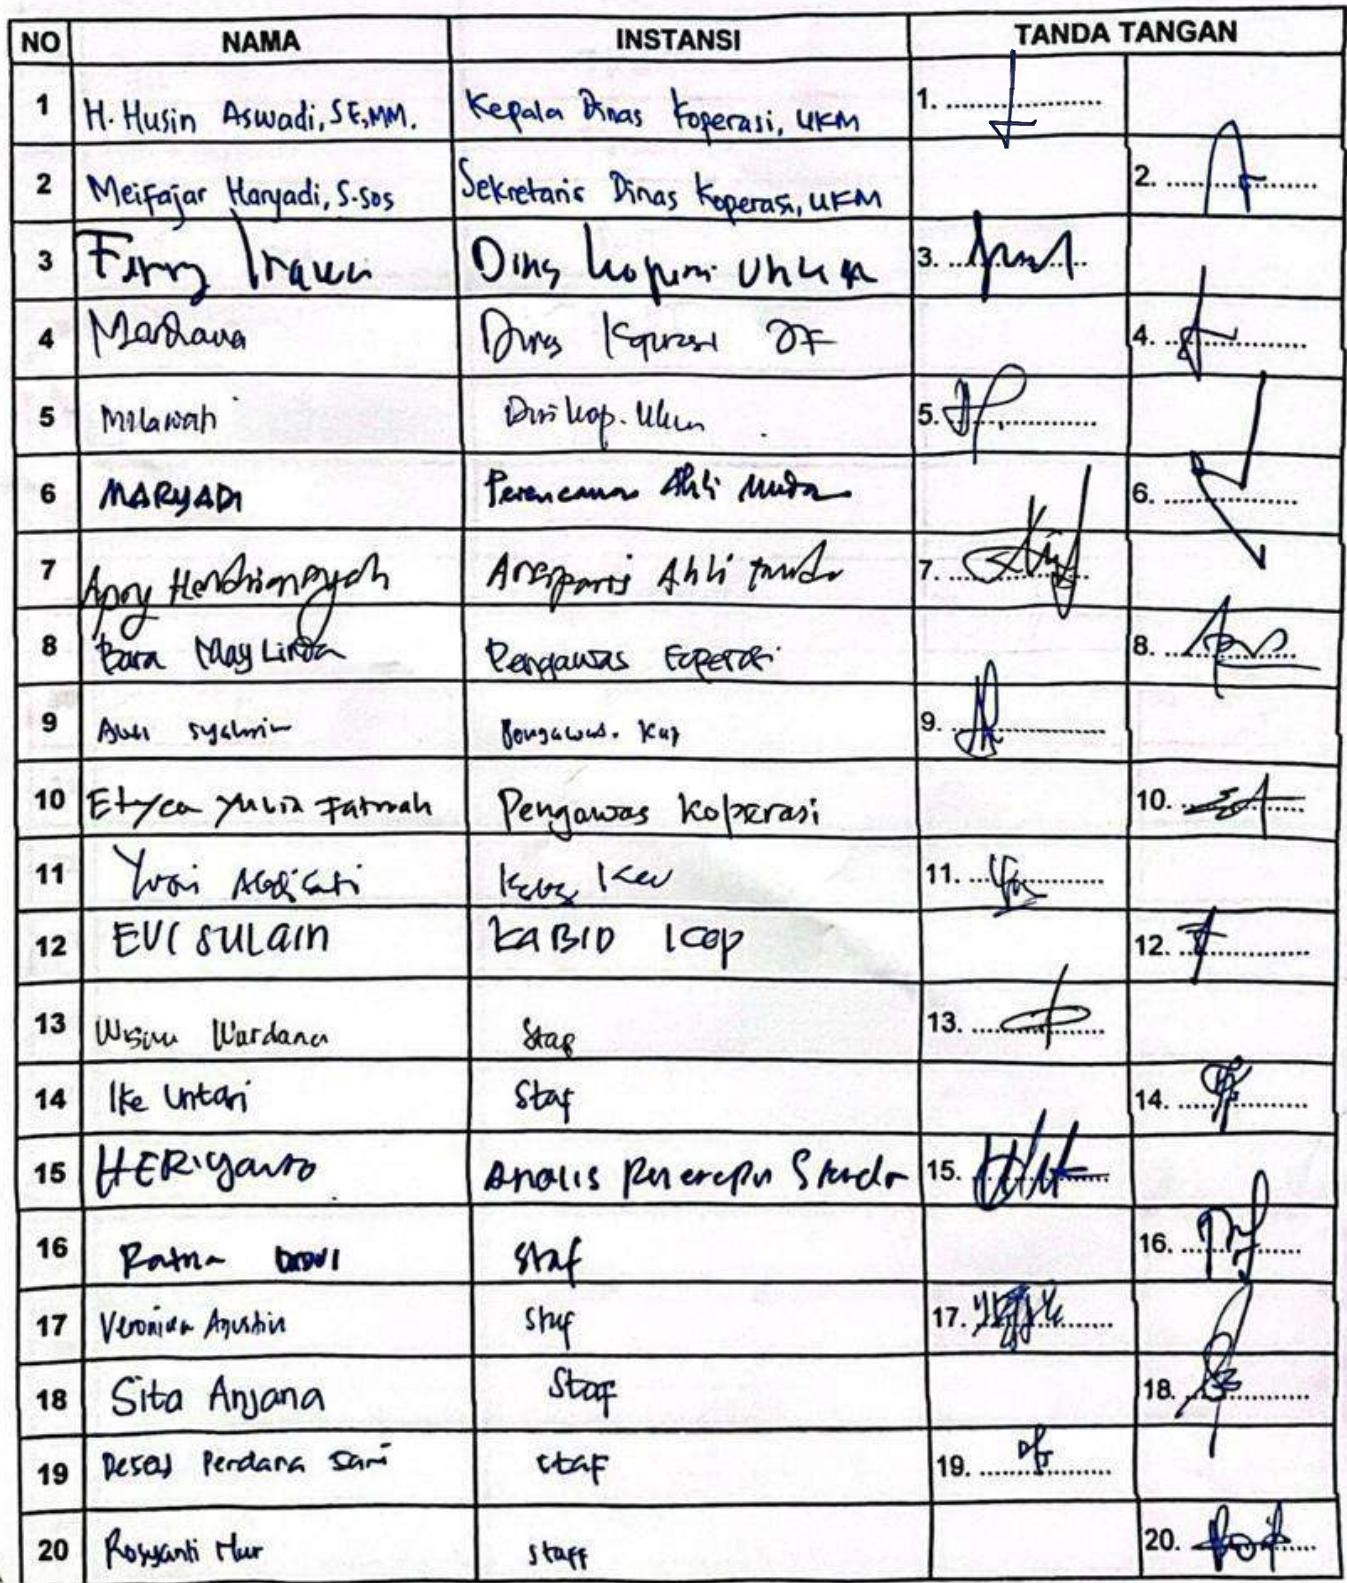 NO NAMA INSTANSI TANDA TANGAN
1 H. Husin Aswadi, SE, MM. Kepala Dinas Koperasi, UKM 1. ....................
2 Meifajar Haryadi, S.Sos Sekretaris Dinas Koperasi, UKM 2. ....................
3 Ferry Irawan Dinas 3. ....................
4 Dinas 4. ....................
5 Milawati 5. ....................
6 MARYADI Perencana Ahli Muda 6. ....................
7 Apry Hendriansyah Arsiparis Ahli Muda 7. ....................
8 Bara May Linda Pengawas Koperasi 8. ....................
9 Pengawas. Kop 9. ....................
10 Etyca Yulia Fatmah Pengawas Koperasi 10. ....................
11 Yusi 11. ....................
12 EVI SULAIN KABID Kop 12. ....................
13 Wisnu Wardana Staf 13. ....................
14 Ike Untari Staf 14. ....................
15 HERiyanto Analis 15. ....................
16 Ratna Dewi Staf 16. ....................
17 Veronica Agustin Staf 17. ....................
18 Sita Anjana Staf 18. ....................
19 Perdana Sari staf 19. ....................
20 Rosyanti Nur staff 20. ....................